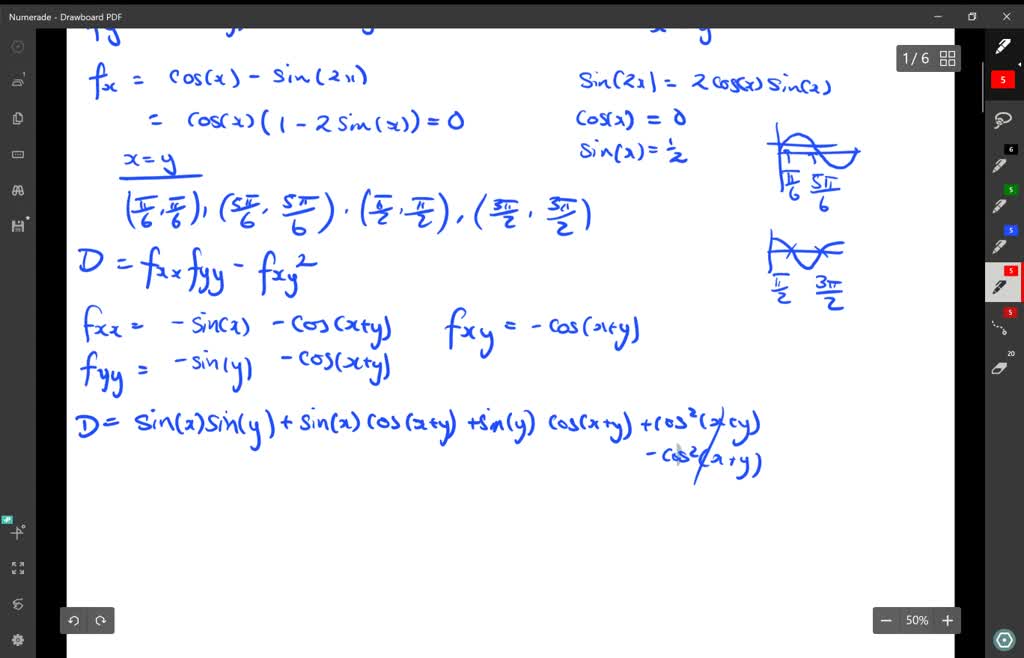 Numerade - Drawboard PDF
1 / 6
fx = cos(x) - sin(2x)
sin(2x) = 2cos(x) sin(x)
= cos(x) (1 - 2 sin(x)) = 0
cos(x) = 0
sin(x) = 1/2
x = y
π/6 5π/6
(π/6, π/6), (5π/6, 5π/6), (π/2, π/2), (3π/2, 3π/2)
D = fxx fyy - fxy²
π/2 3π/2
fxx = -sin(x) - cos(x+y) fxy = -cos(x+y)
fyy = -sin(y) - cos(x+y)
D = sin(x)sin(y) + sin(x) cos(x+y) + sin(y) cos(x+y) + cos²(x+y)
- cos²(x+y)
50%
5
6
5
5
5
5
20